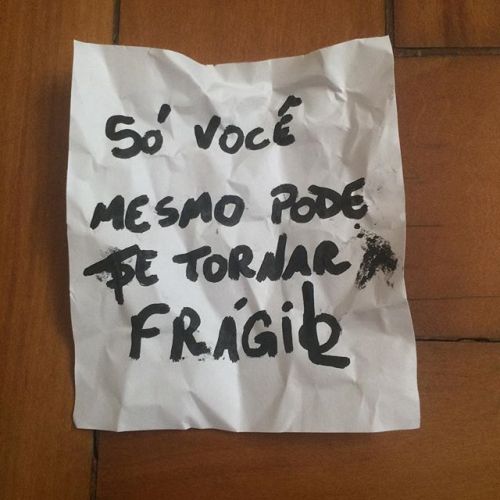 SÓ VOCÊ
MESMO PODE
SE TORNAR
FRÁGIL